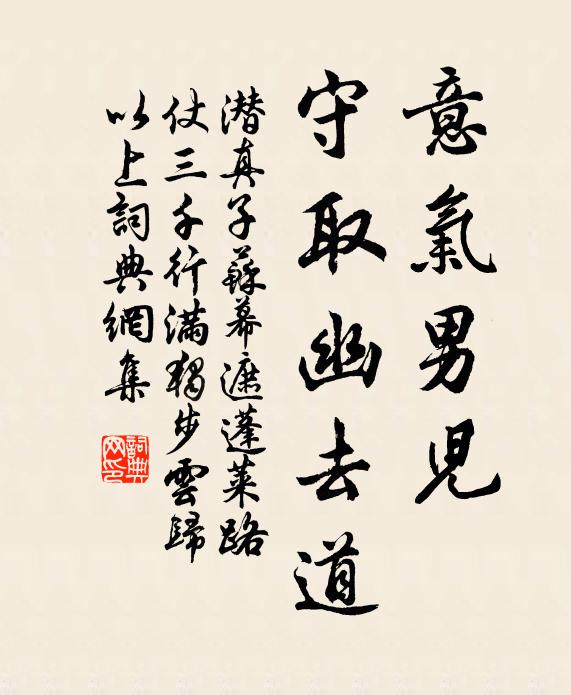 意氣男児
守取幽去道
潜真子蘇幕遮蓬萊路
仗三千行滿獨步雲歸
以上詞典網集
詞典网印